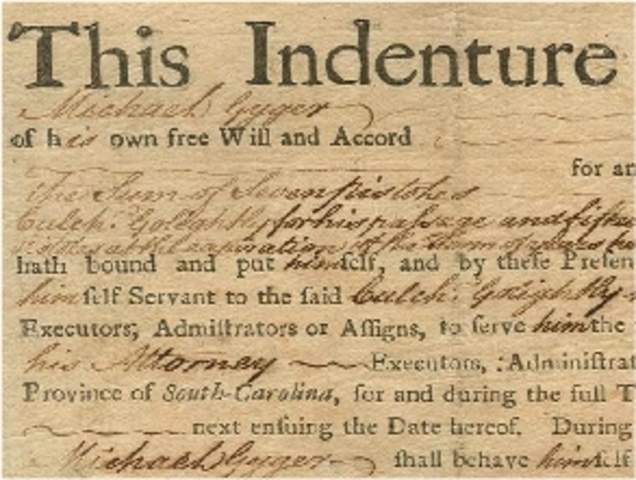 This Indenture
Michael Gyger
of his own free Will and Accord
for an
The Sum of Seven pistoles
Culch: Golightly, for his passage and fiftee
at the expiration of the Term of years
hath bound and put himſelf, and by theſe Preſen
himſelf Servant to the ſaid Culch: Golightly
Executors, Admiſtrators or Aſſigns, to ſerve him the
his Attorney Executors, Adminiſtrat
Province of South-Carolina, for and during the full T
next enſuing the Date hereof. During
Michael Gyger ſhall behave himſelf